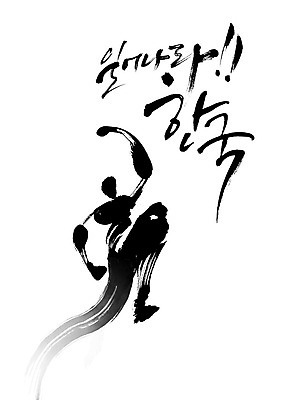 일어나라!!
한국